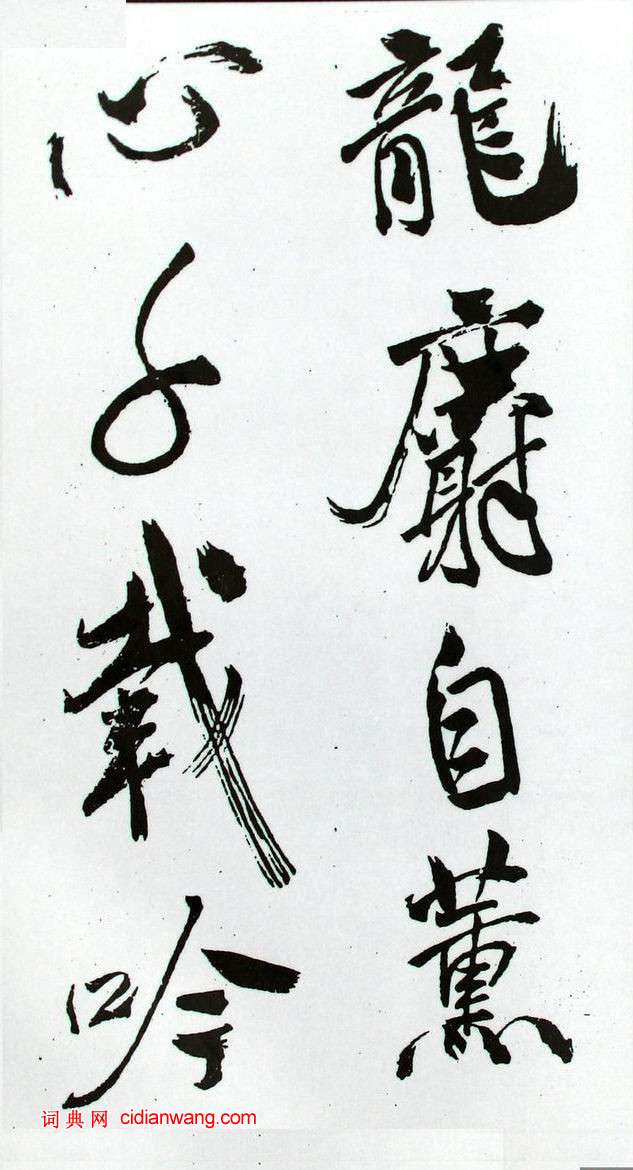 龍麝自薰
心千載吟
词典网 cidianwang.com